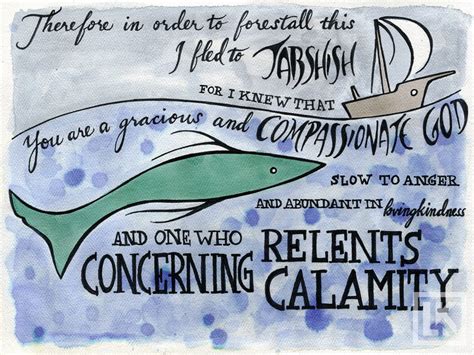 Therefore in order to forestall this
I fled to TARSHISH
FOR I KNEW THAT
You are a gracious and COMPASSIONATE GOD
SLOW TO ANGER
AND ABUNDANT IN lovingkindness
AND ONE WHO RELENTS
CONCERNING CALAMITY